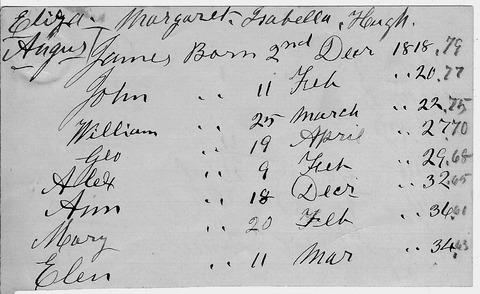 Eliza. Margaret. Isabella. Hugh.
Angus James Born 2nd Decr 1818. 79
John " 11 Feb " 20. 77
William " 25 March " 22. 75
Geo " 19 April " 27 70
Allex " 9 Feb " 29. 68
Ann " 18 Decr " 32. 65
Mary " 20 Feb " 36. 61
Elen " 11 Mar " 34. 63